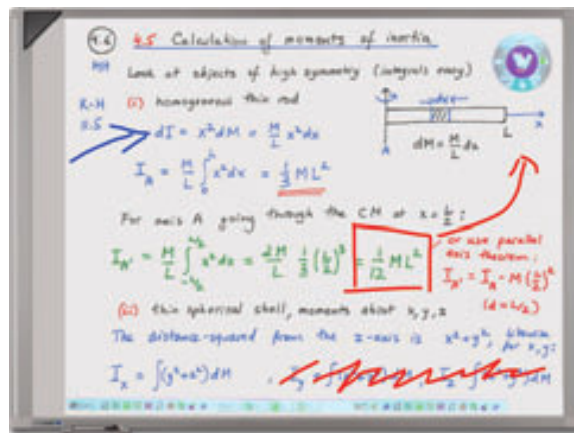 4.6 4.5 Calculation of moments of inertia
Look at objects of high symmetry (integrals easy)
R-H
11.5
(i) homogeneous thin rod
dI = x² dM = M/L x² dx
dM = M/L dx
A
L
x
I_A = M/L ∫₀ᴸ x² dx = 1/3 ML²
For axis A going through the CM at x = L/2 :
I_A' = M/L ∫_{-L/2}^{L/2} x² dx = 2M/L 1/3 (L/2)³ = 1/12 ML²
or use parallel
axis theorem:
I_A' = I_A - M(L/2)²
(d = L/2)
(ii) thin spherical shell, moments about x, y, z
The distance-squared from the z-axis is x² + y², likewise
for x, y:
I_x = ∫(y² + z²) dM , I_y = ∫ , I_z = ∫ dM